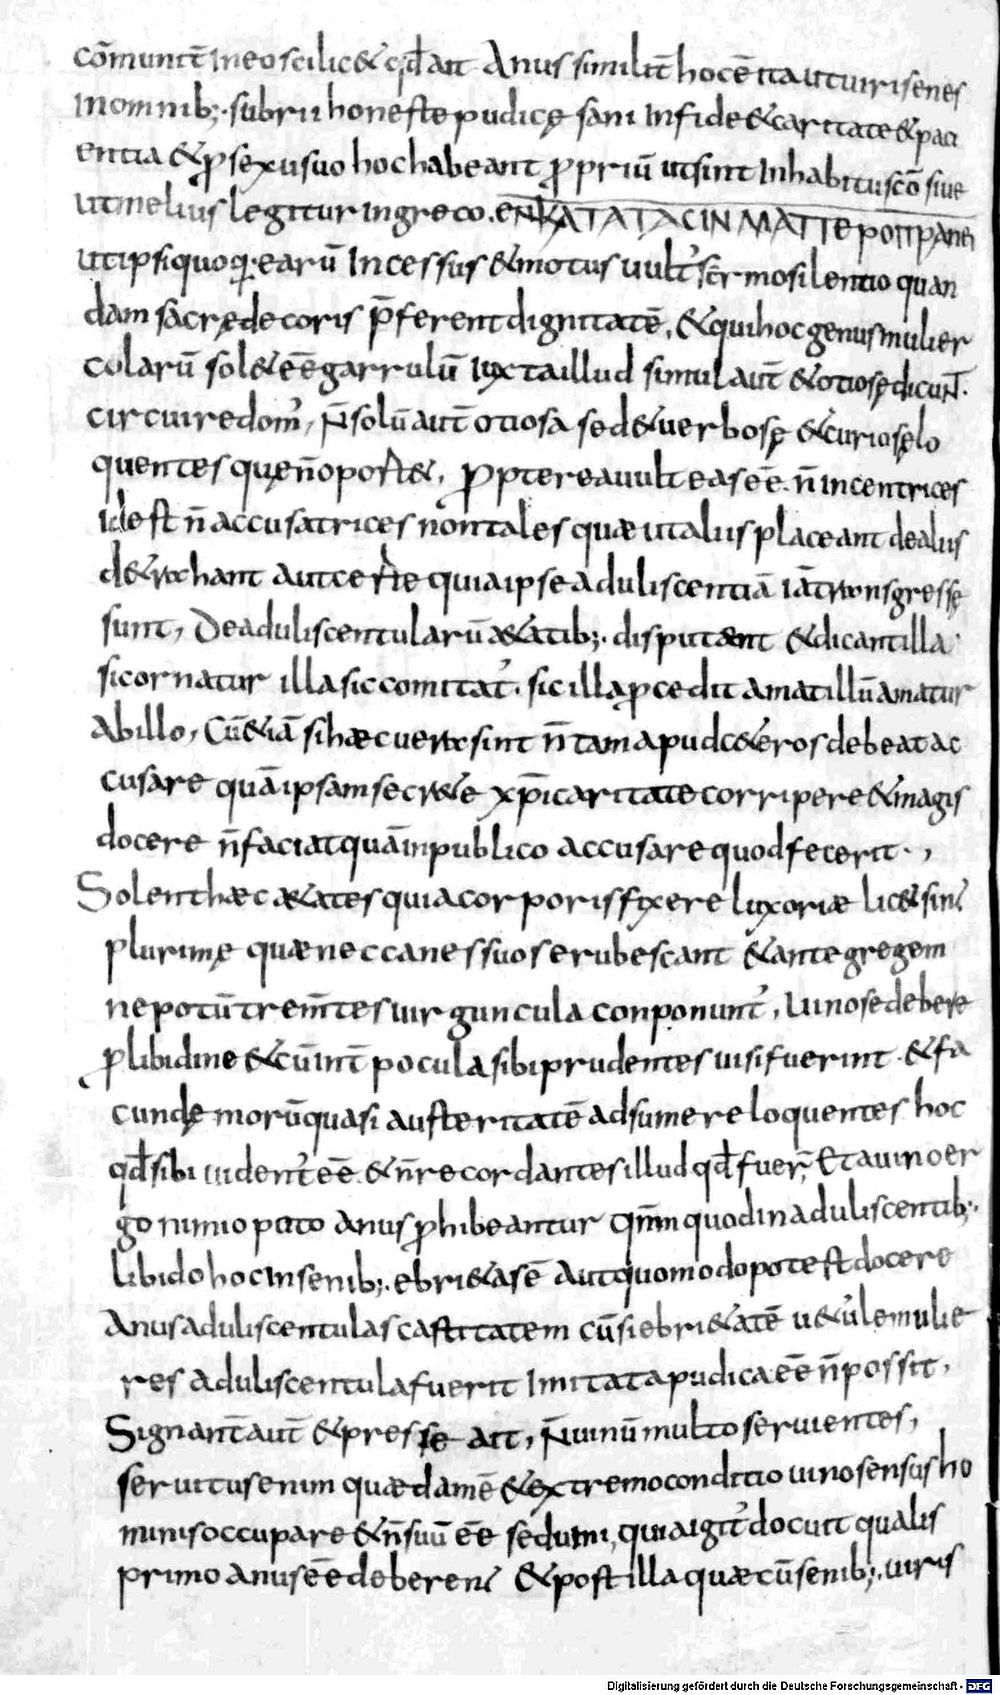 cōmunit̄ in eo scilic& q̵d ait Anus similit̄ hoc ē ita ut uiri senes
in omnib; · subrii honeste pudicę sani in fide & caritate & paci
entia & p̱ sexu suo hoc habeant p̱priū ut sint in habitu scō siue
ut melius legitur in greco. ENKATATACINMATTEPOΠPANEI
ut ipsi quoq; · earū incessus & motus uult᾽ sermo silentio quan
dam sacrę decoris p̄ferent dignitatē, & qui hoc genus mulier
cularū sol& eē garrulū iuxta illud simul aut̄ & otiosę dicunt̄.
circuire dom᾽, N̄ solū aut̄ otiosa sed & uerbosę & curiosę lo
quentes quę n̄ oport&, p̱pterea uult eas eē n̄ incentrices
id est n̄ accusatrices non tales quæ ut aliis placeant de aliis
d&rachant aut certe quia ipse aduliscentiā iā transgressę
sunt, De aduliscentularū æ&atib; · disputant & dicant illa
sic ornatur illa sic comitat᾽. sic illa p̱cedit amat illū amatur
ab illo, Cū &iā si hæc uera sint n̄ tam apud c&eros debeat ac
cusare quā ipsam secr&e xp̄i caritate corripere & magis
docere n̄ faciat quā in publico accusare quod fecerit · ,
Solent hæc æ&ates quia corporis fixere luxoriæ lic& sint
plurimę quæ nec canes suos erubescant & ante gregem
nepotū trem̄tes uirguncula conponunt᾽, Uino se debere
p̱ libidine & cū int̄ pocula sibi prudentes uisi fuerint · & fa
cundę morū quasi austeritatē adsumere loquentes hoc
q̵d sibi uident᾽ eē & n̄ recordantes illud q̵d fuer̄, Et a uino er
go nimio puto anus p̱hibeantur qm̄ quod in aduliscentib; ·
libido hoc in senib; · ebri&as ē Aut quomodo potest docere
anus aduliscentulas castitatem cū si ebri&atē u&ule mulie
res aduliscentula fuerit imitata pudica eē n̄ possit,
Signant̄ aut̄ & presse ait, N̄ uinū multo seruientes,
seruitus enim quædam ē & extremo conditio uino sensus ho
minis occupare & n̄ suū eē sed uini, quia igit᾽ docuit qualis
primo anus eē deberent & post illa quæ cū senib; · uiris